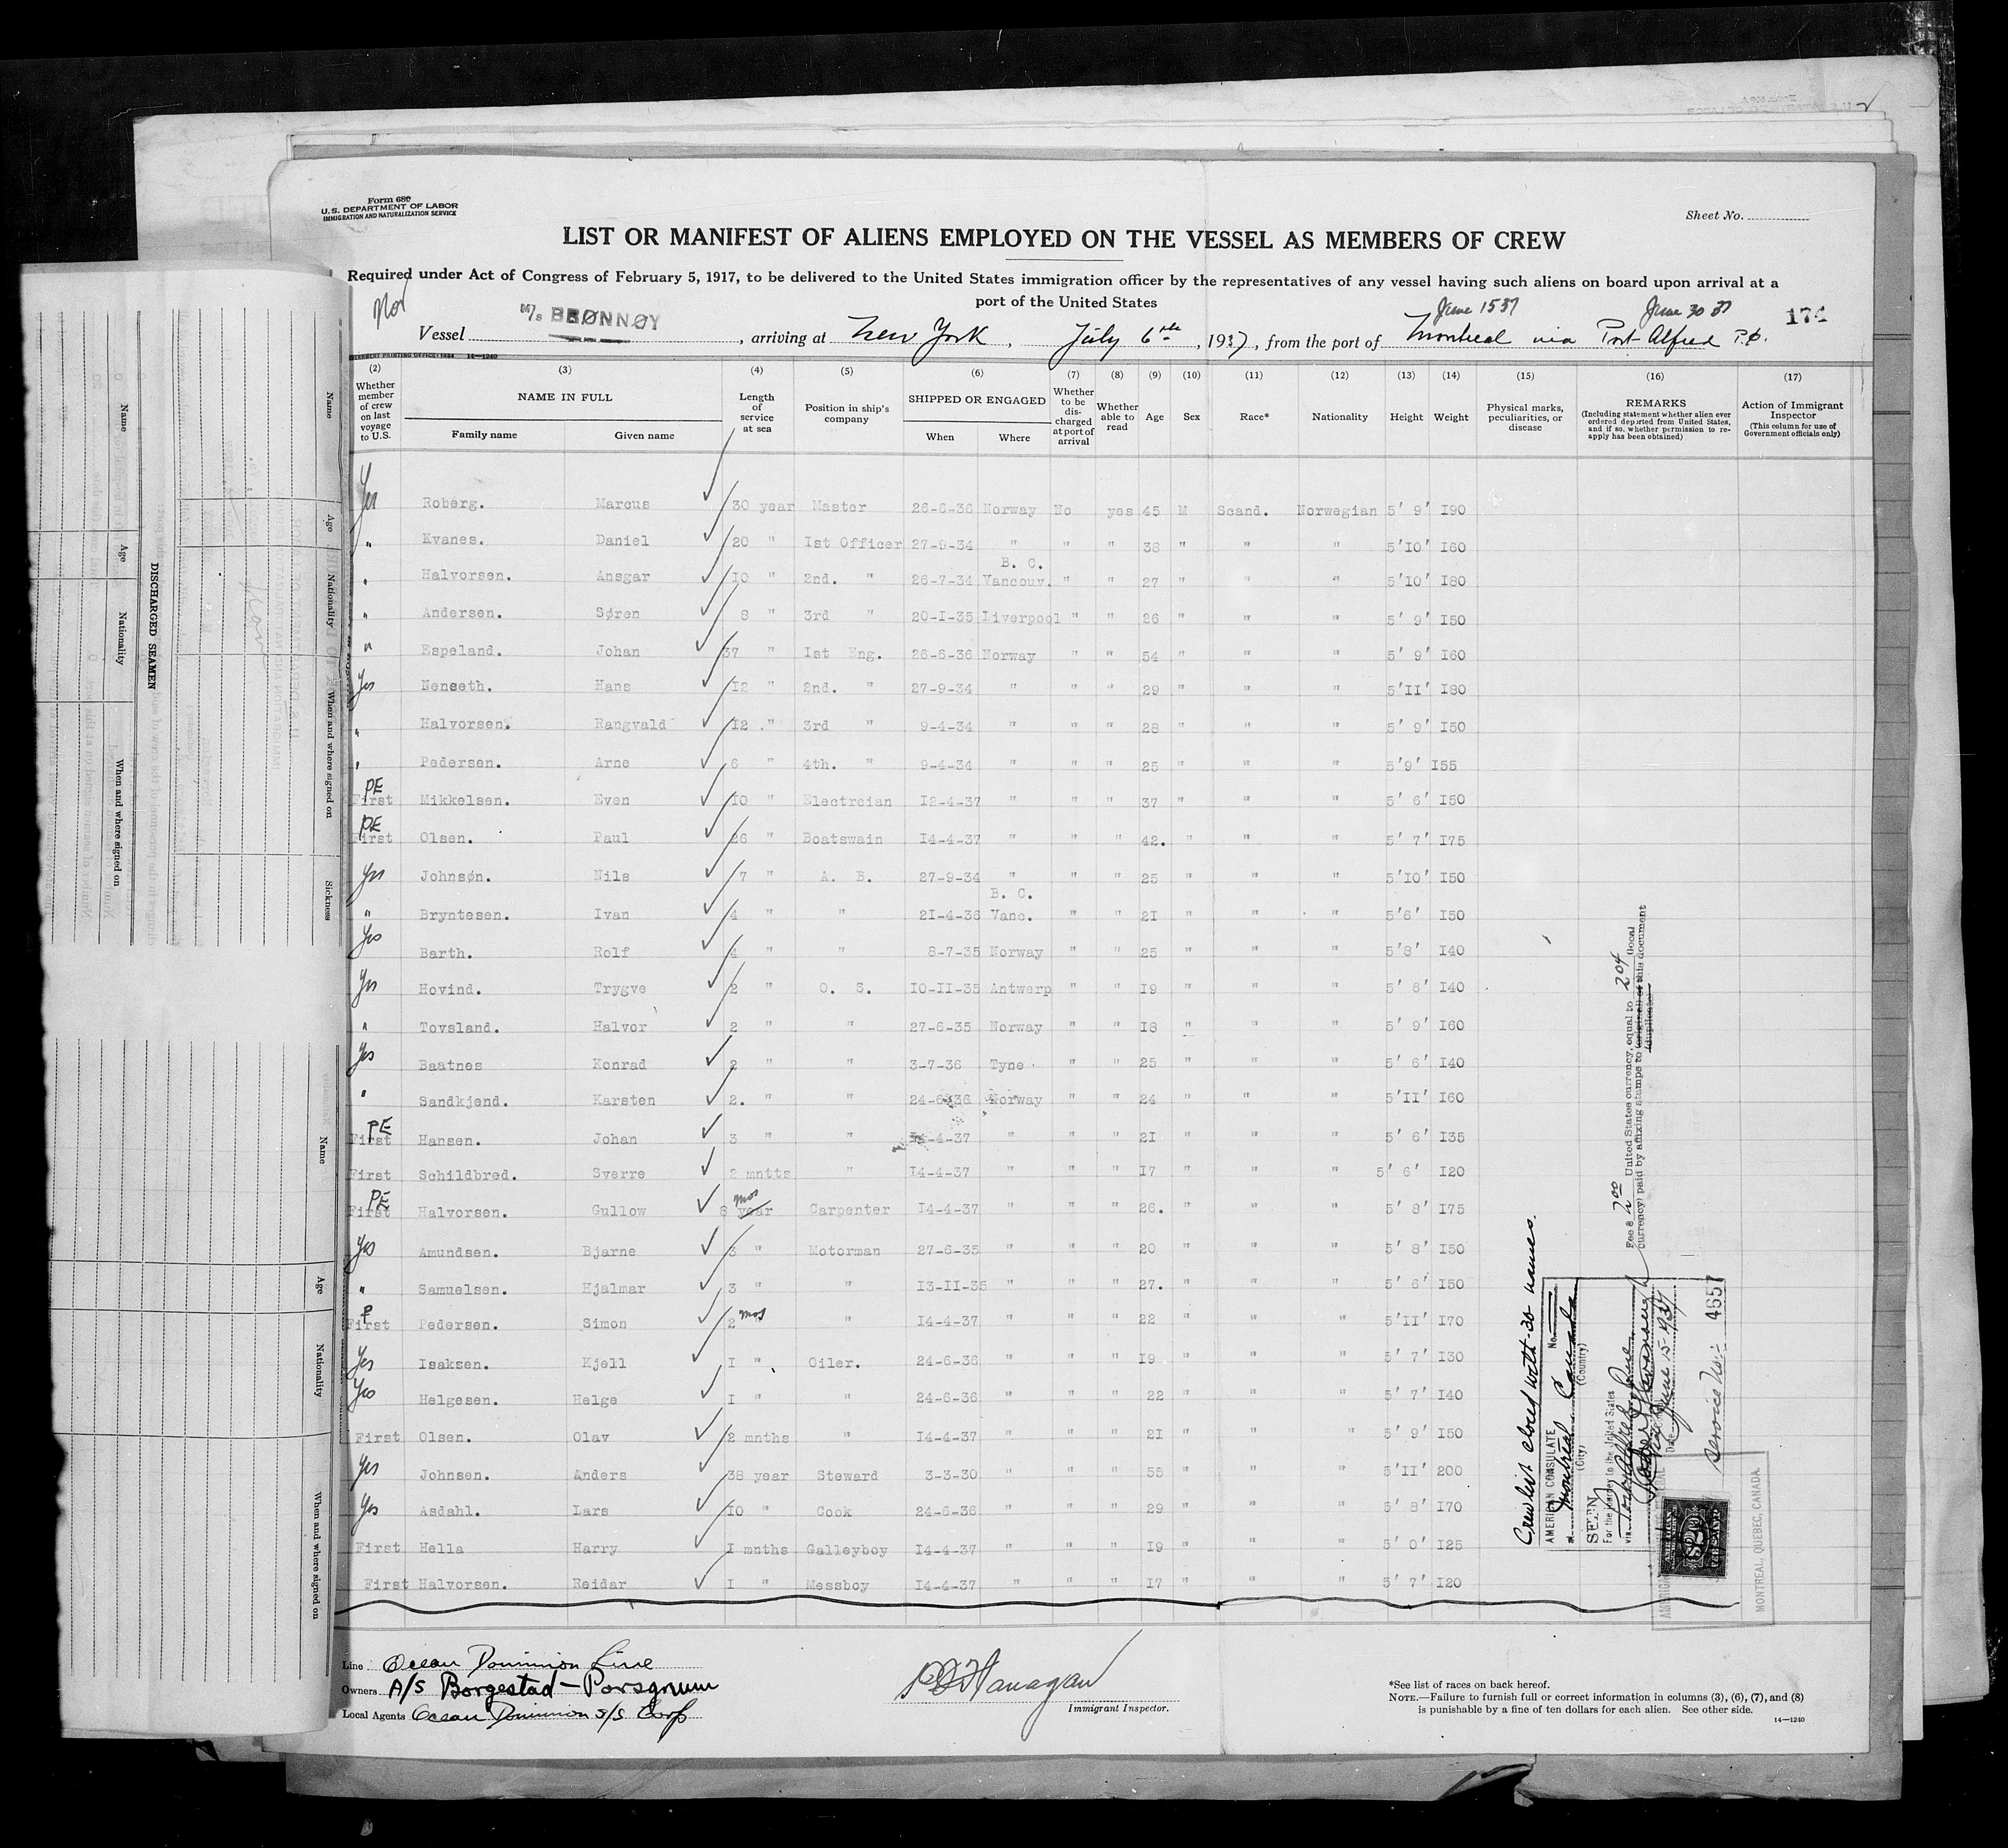 Form 680
U.S. DEPARTMENT OF LABOR
IMMIGRATION AND NATURALIZATION SERVICE
Sheet No.
LIST OR MANIFEST OF ALIENS EMPLOYED ON THE VESSEL AS MEMBERS OF CREW
Required under Act of Congress of February 5, 1917, to be delivered to the United States immigration officer by the representatives of any vessel having such aliens on board upon arrival at a
port of the United States
Nor
June 15 37 June 30 37
174
Vessel M/s BRØNNØY, arriving at New York, July 6th, 1937, from the port of Montreal via Port Alfred P.Q.
14—1240
(2) (3) (4) (5) (6) (7) (8) (9) (10) (11) (12) (13) (14) (15) (16) (17)
Whether member of crew on last voyage to U.S.
NAME IN FULL
Family name Given name
Length of service at sea
Position in ship's company
SHIPPED OR ENGAGED
When Where
Whether to be discharged at port of arrival
Whether able to read
Age Sex Race* Nationality Height Weight
Physical marks, peculiarities, or disease
REMARKS
(Including statement whether alien ever ordered deported from United States, and if so, whether permission to reapply has been obtained)
Action of Immigrant Inspector
(This column for use of Government officials only)
Yes Roberg. Marcus 30 year Master 26-6-36 Norway No yes 45 M Scand. Norwegian 5' 9' I90
" Kvanes. Daniel 20 " Ist Officer 27-9-34 " " " 38 " " " 5'IO' I60
" Halvorsen. Ansgar IO " 2nd. " 26-7-34 B. C. Vancouv. " " 27 " " " 5'IO' I80
" Andersen. Søren 8 " 3rd " 20-I-35 Liverpool " " 26 " " " 5' 9' I50
" Espeland. Johan 37 " Ist Eng. 26-6-36 Norway " " 54 " " " 5' 9' I60
Yes Nenseth. Hans I2 " 2nd. " 27-9-34 " " " 29 " " " 5'II' I80
" Halvorsen. Rangvald I2 " 3rd " 9-4-34 " " " 28 " " " 5' 9' I50
" Pedersen. Arne 6 " 4th. " 9-4-34 " " " 25 " " " 5'9' I55
PE First Mikkelsen. Even IO " Electrcian I2-4-37 " " " 37 " " " 5' 6' I50
PE First Olsen. Paul 26 " Boatswain I4-4-37 " " " 42. " " " 5' 7' I75
Yes Johnsøn. Nils 7 " A. B. 27-9-34 " " " 25 " " " 5'IO' I50
" Bryntesen. Ivan 4 " " 2I-4-36 B. C. Vanc. " " 2I " " " 5'6' I50
Yes Barth. Rolf 4 " " 8-7-35 Norway " " 25 " " " 5'8' I40
Yes Hovind. Trygve 2 " O. S. IO-II-35 Antwerp " " I9 " " " 5' 6' I40
" Tovsland. Halvor 2 " " 27-6-35 Norway " " I8 " " " 5' 9' I60
Yes Baatnes Konrad 2 " " 3-7-36 Tyne " " 25 " " " 5' 6' I40
" Sandkjend. Karsten 2. " " 24-6-36 Norway " " 24 " " " 5'II' I60
PE First Hansen. Johan 3 " " I4-4-37 " " " 2I " " " 5' 6' I35
First Schildbred. Sverre 2 mntts " I4-4-37 " " " I7 " " " 5' 6' I20
PE First Halvorsen. Gullow 8 year mos Carpenter I4-4-37 " " " 26. " " " 5' 8' I75
Yes Amundsen. Bjarne 3 " Motorman 27-6-35 " " " 20 " " " 5' 8' I50
" Samuelsen. Hjalmar 3 " " I3-II-35 " " " 27. " " " 5' 6' I50
P First Pedersen. Simon 2 mos " I4-4-37 " " " 22 " " " 5'II' I70
Yes Isaksen. Kjell I " Oiler. 24-6-36 " " " I9 " " " 5' 7' I30
Yes Helgesen. Helge I " " 24-6-36 " " " 22 " " " 5' 7' I40
First Olsen. Olav 2 mnths " I4-4-37 " " " 2I " " " 5' 9' I50
Yes Johnsen. Anders 38 year Steward 3-3-30 " " " 55 " " " 5'II' 200
Yes Asdahl. Lars IO " Cook 24-6-36 " " " 29 " " " 5' 8' I70
First Hella Harry I mnths Galleyboy I4-4-37 " " " I9 " " " 5' 0' I25
First Halvorsen. Reidar I " Messboy I4-4-37 " " " I7 " " " 5' 7' I20
Crew list closed with 30 names.
AMERICAN CONSULATE No.
at Montreal Canada
(City) (Country)
SEEN
For the journey to the United States
via Port Alfred, Que.
Date June 15 1937
Service No. 4657
Fee $ 2.00 United States currency, equal to 2 04 (local
currency) paid by affixing stamps to (original) of this document
(duplicate)
$2
MONTREAL, QUEBEC, CANADA.
Line Ocean Dominion Line
Owners A/S Borgestad - Porsgrunn
Local Agents Ocean Dominion S/S Corp
Flanagan
Immigrant Inspector.
*See list of races on back hereof.
NOTE.—Failure to furnish full or correct information in columns (3), (6), (7), and (8)
is punishable by a fine of ten dollars for each alien. See other side.
14—1240
DISCHARGED SEAMEN
Name Age Nationality When and where signed on
Name Age Nationality When and where signed on Sickness
Name Age Nationality When and where signed on